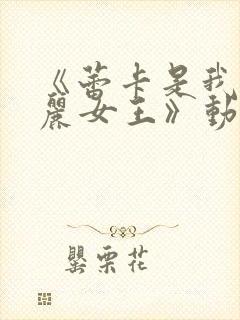 《蕾卡是我
麗女王》動
罌粟花